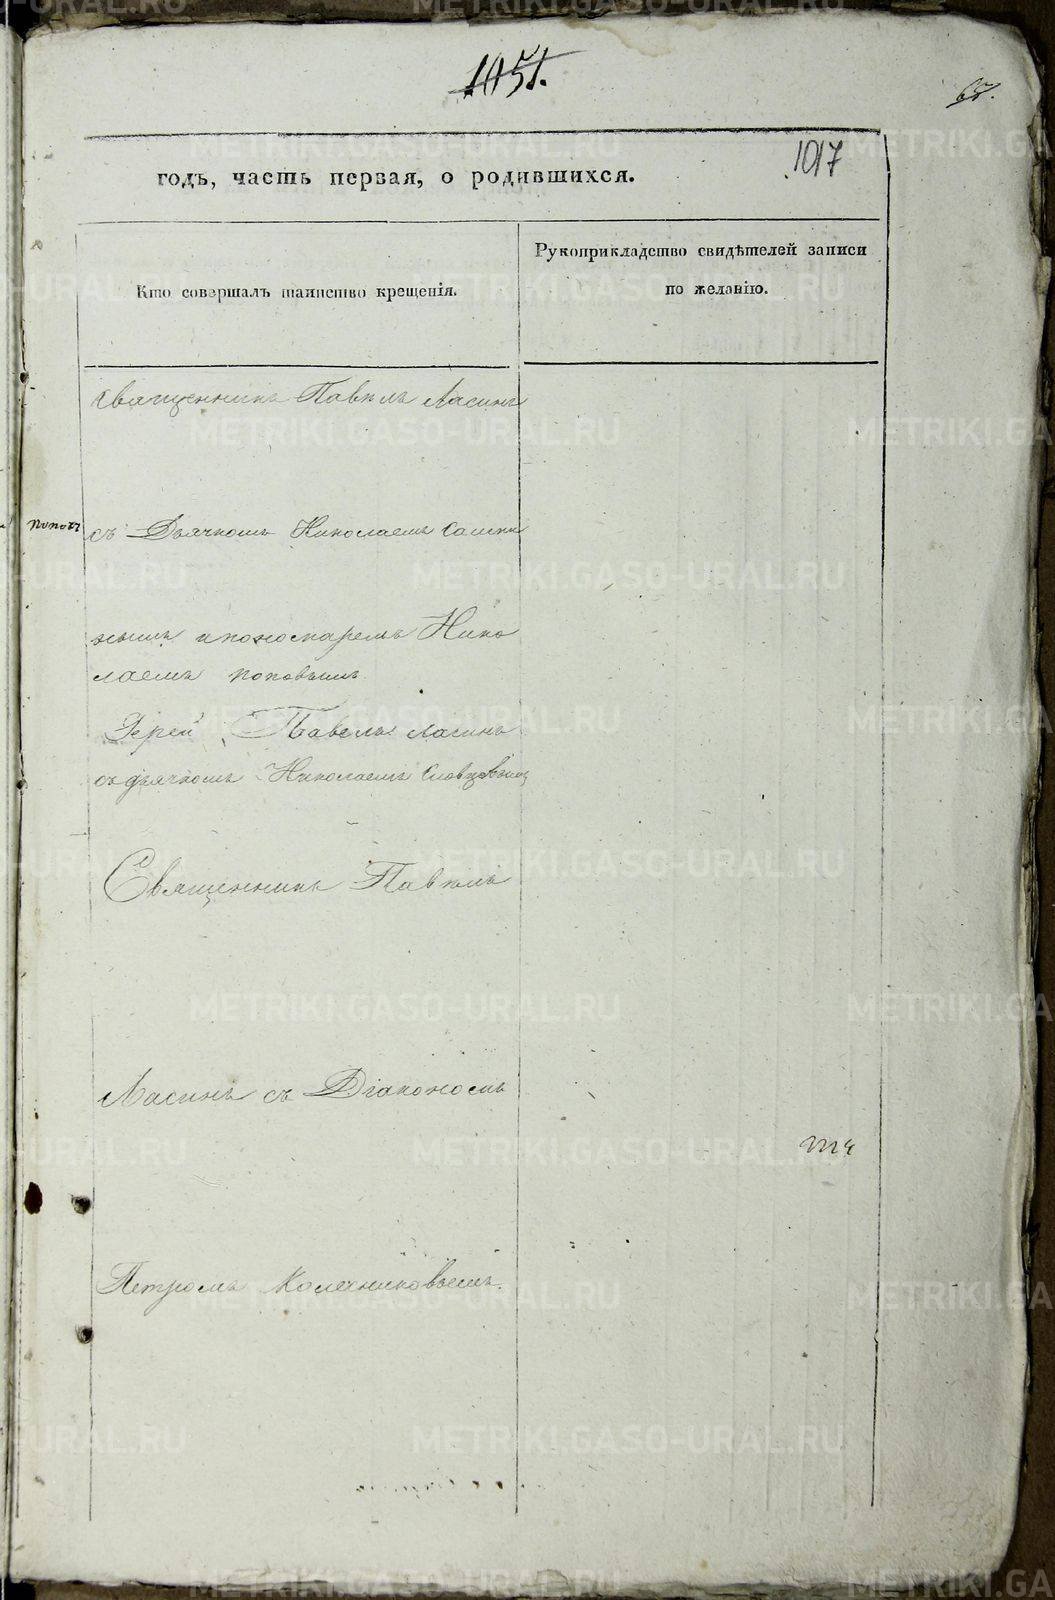 1051.
67.
1017
годъ, часть первая, о родившихся.
Кто совершалъ таинство крещенія.
Рукоприкладство свидѣтелей записи
по желанію.
Священникъ Павелъ Ласинъ
съ Дьячкомъ Николаемъ
ными и пономаремъ Нико
лаемъ Поповымъ
Іерей Павелъ Ласинъ
съ дьячкомъ Николаемъ Словцовымъ
Священникъ Павелъ
Ласинъ съ Діакономъ
Петромъ Колесниковымъ.
METRIKI.GASO-URAL.RU